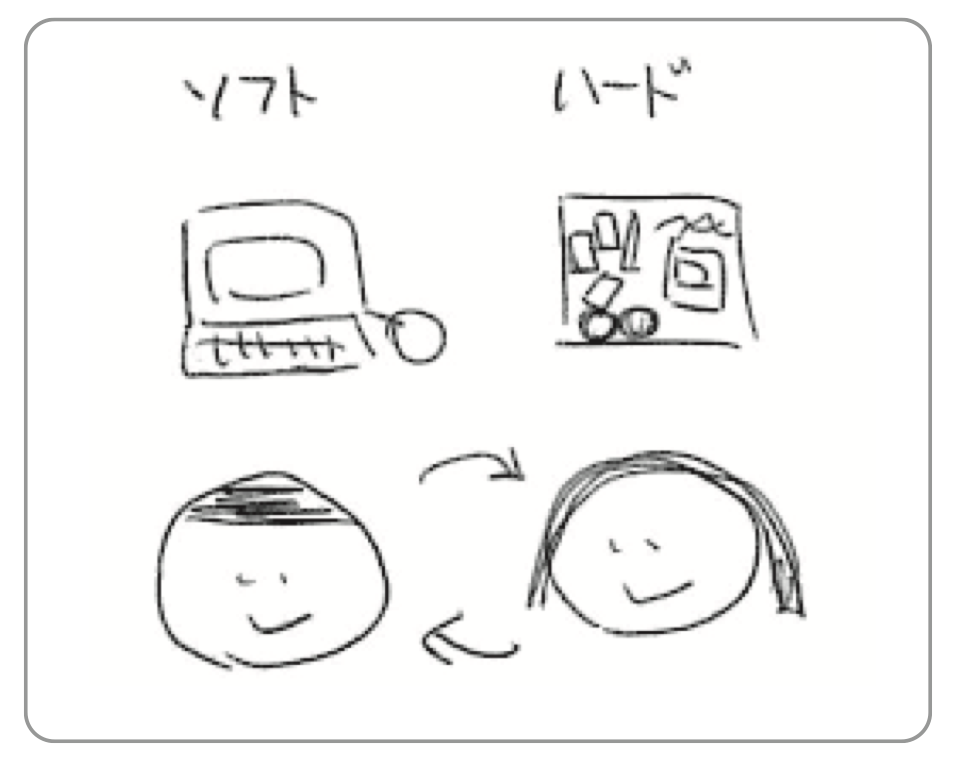 ソフト ハード